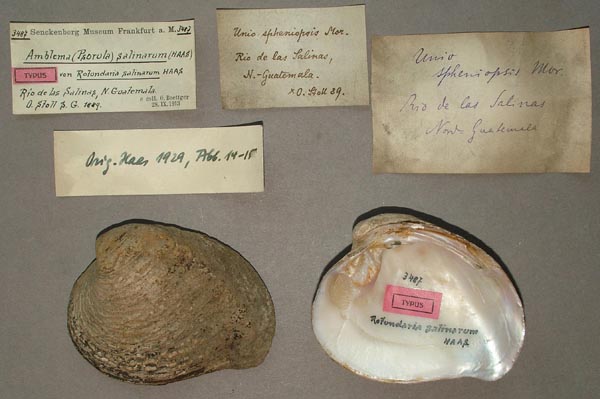 3487 Senckenberg Museum Frankfurt a. M. 3487
Amblema (Psorula) salinarum (HAAS)
TYPUS von Rotundaria salinarum HAAS
Rio de las Salinas, N. Guatemala.
O. Stoll S. G. 1889.
e coll. O. Boettger
28. IX. 1913
Unio spheniopsis Mor.
Rio de las Salinas,
N.-Guatemala.
O. Stoll 89.
Unio
spheniopsis Mor.
Rio de las Salinas
Nord Guatemala
Orig. Haas 1929, Abb. 14-15
3487
TYPUS
Rotundaria salinarum
HAAS